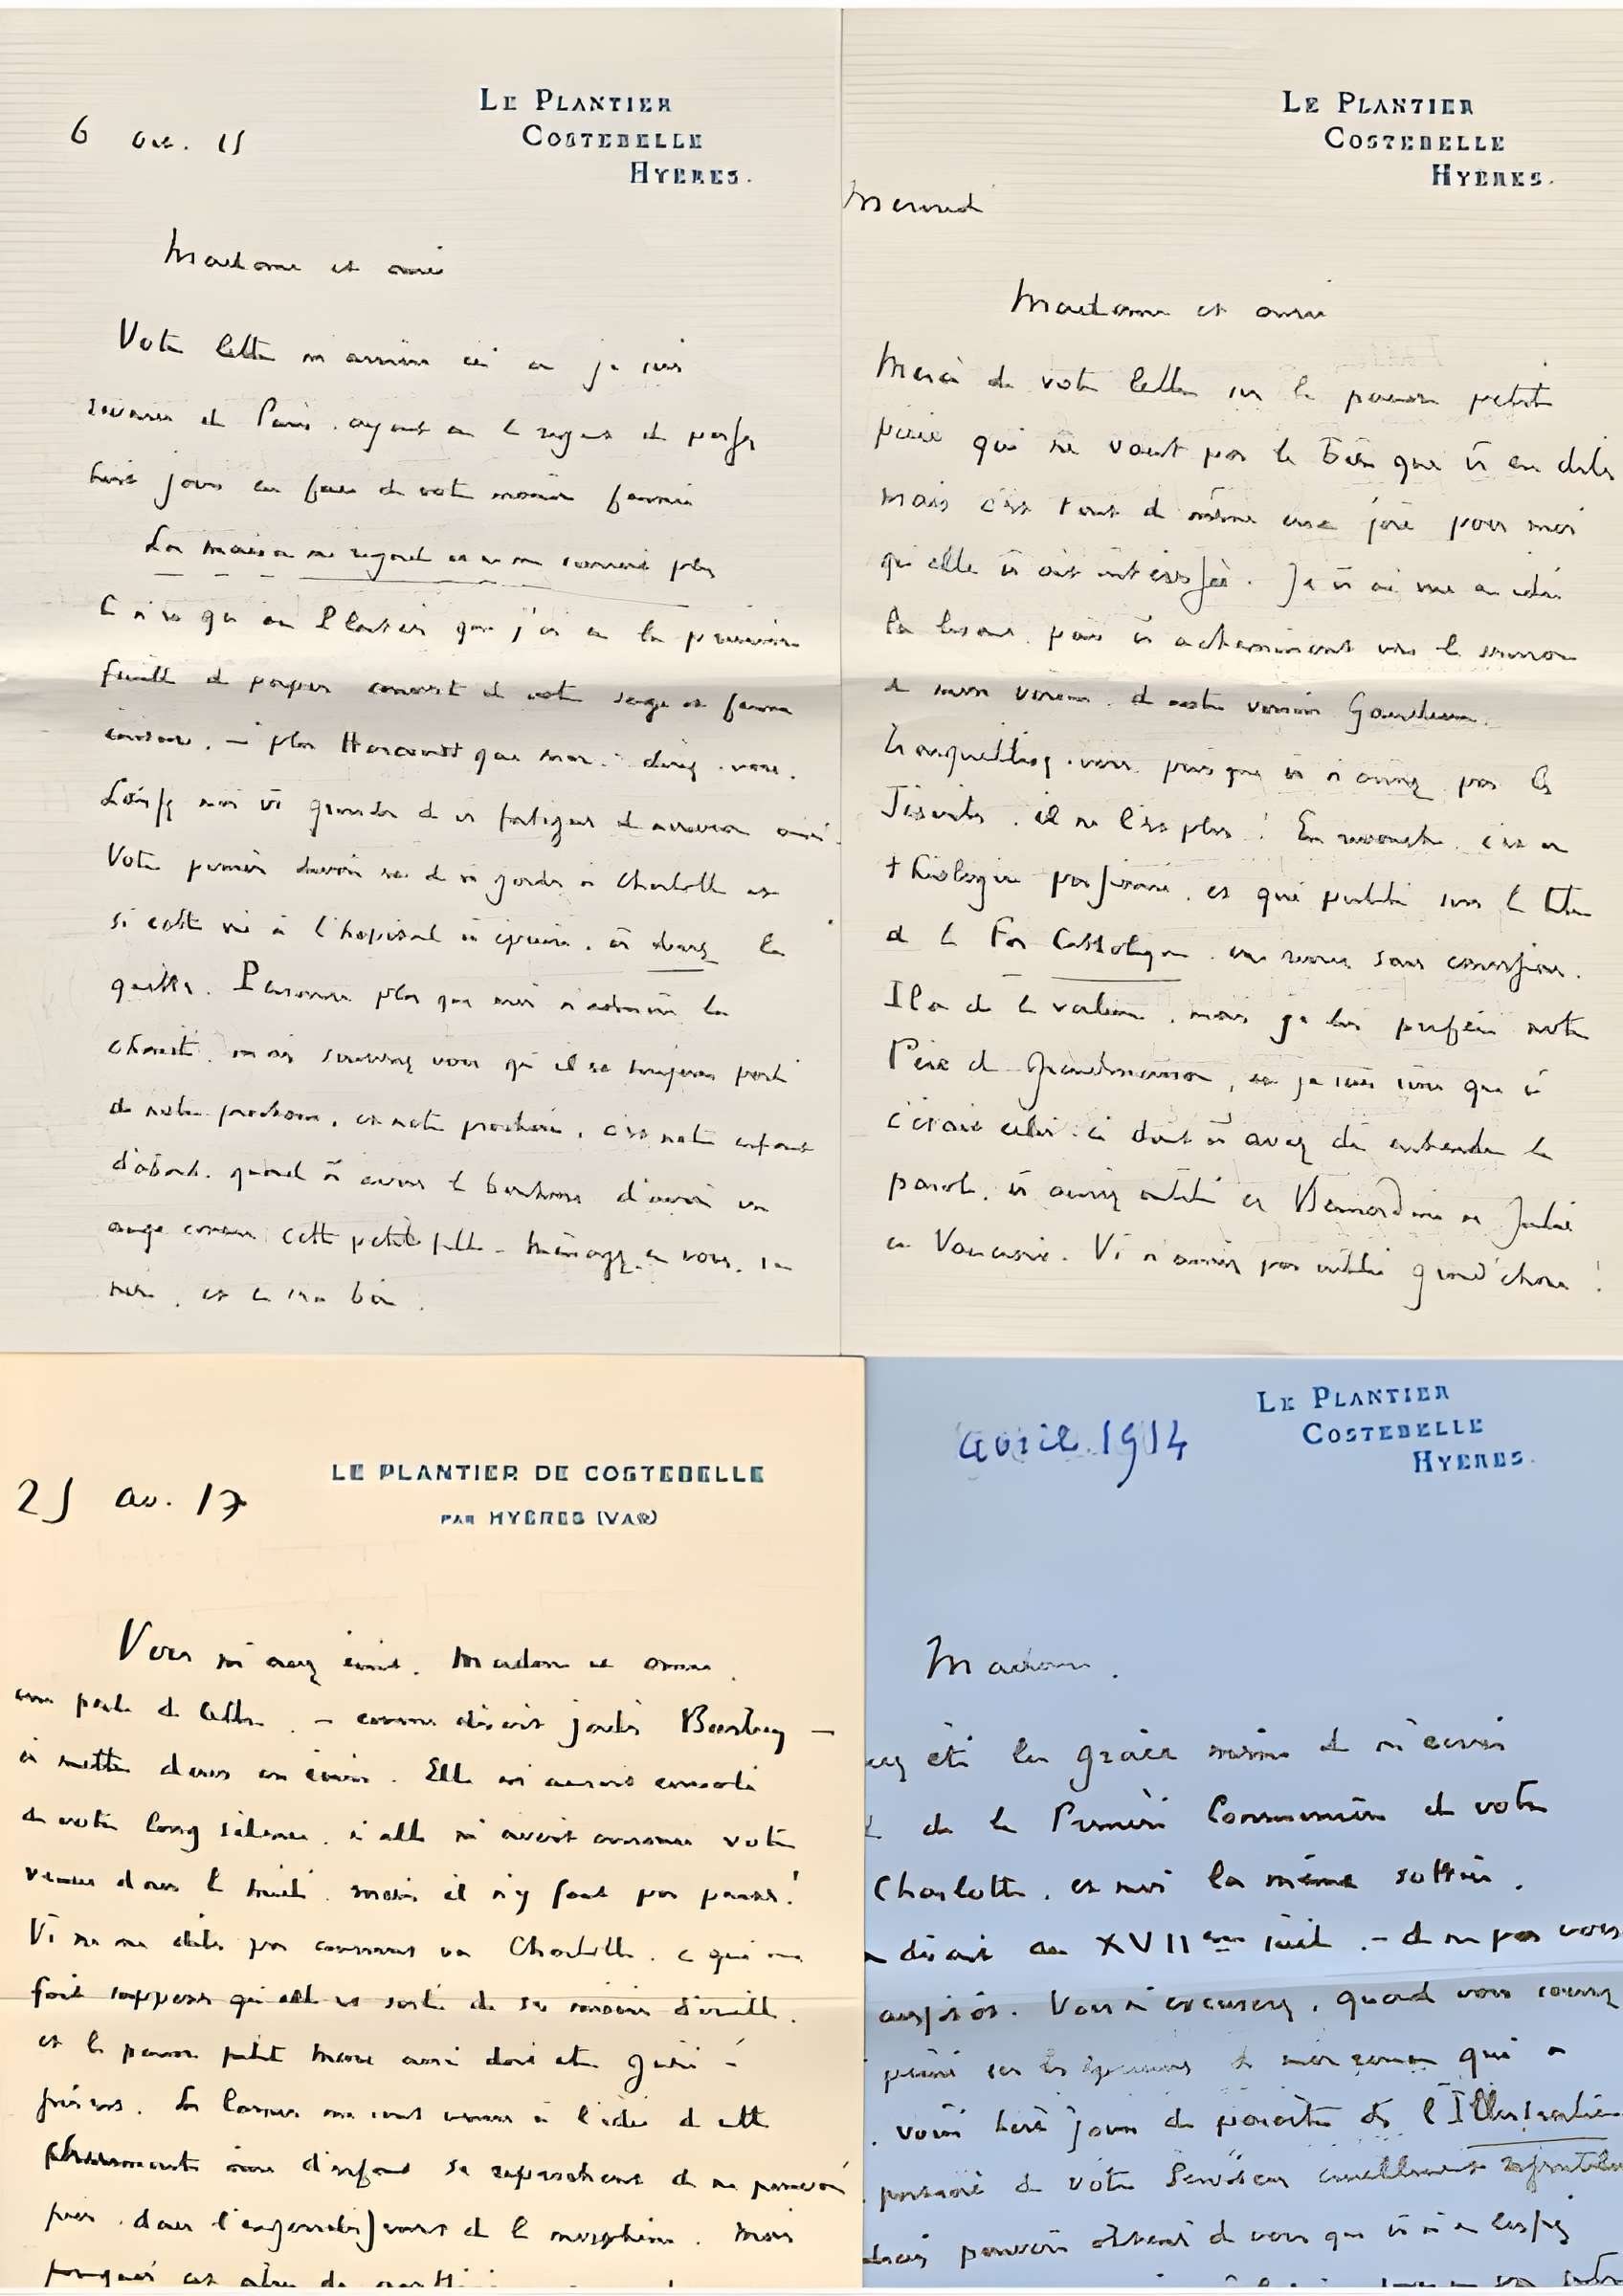 LE PLANTIER
COSTEBELLE
HYÈRES.
6 15
Madame et amie
Votre lettre m'arrive ici où je suis
revenu de Paris, ayant eu le regret de passer
huit jours en face de votre maison fermée
La maison me regarde et ne me connaît plus
Ce n'est qu'au Plantier que j'ai eu la première
feuille de papier couvert de votre sage et ferme
écriture. — plus Harcourt que direz-vous.
Laissez moi vs gronder de vs fatiguer de nouveau ainsi.
Votre premier devoir est de vs garder à Charlotte et
si cette vie à l'hôpital vs épuise, vs devez la
quitter. Personne plus que moi n'admire la
charité, mais souvenez vous qu'il est toujours parlé
de notre prochain, et notre prochain, c'est notre enfant
d'abord, quand on a le bonheur d'avoir un
ange comme cette petite fille. Ménagez-vous,
et ce sera bien.
LE PLANTIER
COSTEBELLE
HYÈRES.
Mercredi
Madame et amie
Merci de votre lettre sur la pauvre petite
pièce qui ne vaut pas le bien que vs en dites
mais c'est tout de même une joie pour moi
qu'elle vs ait intéressée. Je vs ai vue en idée
la lisant, puis vs acheminant vers le sermon
de mon voisin, de notre voisin
Tranquillisez-vous, puisque vs n'aimez pas les
Jésuites, il ne l'est plus! En revanche, c'est un
théologien passionné, et qui publie sous le titre
de la Foi Catholique une revue sans concession.
Il a de la valeur, mais je lui préfère notre
Père de Grandmaison, et je suis sûr que si
c'était celui-ci dont vs avez dû entendre la
parole, vs auriez oublié et Bernardin et Julie
et Vaucroix. Vs n'auriez pas oublié grand'chose!
LE PLANTIER DE COSTEBELLE
PAR HYÈRES (VAR)
25 av. 17
Vous m'avez écrit, Madame et amie,
une perle de lettre, — comme disait jadis Barbey —
à mettre dans un écrin. Elle m'aurait consolé
de votre long silence, si elle m'avait annoncé votre
venue dans le midi, mais il n'y faut pas penser!
Vs ne me dites pas comment va Charlotte, ce qui me
fait supposer qu'elle est sortie de ses misères d'oreille,
et le pauvre petit Marc aussi doit être guéri —
Les larmes me sont venues à l'idée de cette
charmante âme d'enfant se reprochant de ne pouvoir
prier, dans l'engourdissement de la morphine. Mais
pourquoi
LE PLANTIER
COSTEBELLE
HYÈRES.
avril 1914
Madame,
été la grâce même de m'écrire
de la Première Communion de votre
Charlotte, et moi la même sottise,
disait au XVIIème siècle, — de ne pas vous
aussitôt. Vous m'excuserez, quand vous saurez
peiné sur les épreuves de mon roman qui a
voici huit jours de paraître ds l'Illustration
de votre serviteur cruellement
pouvoir obtenir de vous que vs m'en